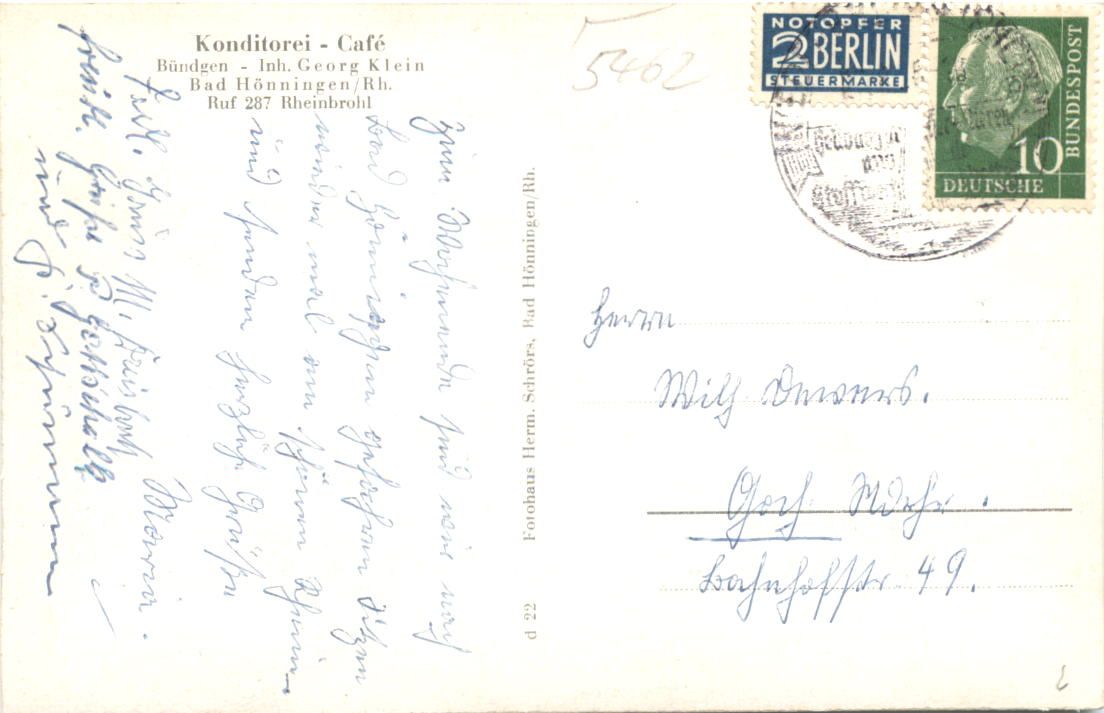 Konditorei - Café
Bündgen - Inh. Georg Klein
Bad Hönningen/Rh.
Ruf 287 Rheinbrohl
5462
NOTOPFER
2 BERLIN
STEUERMARKE
DEUTSCHE
BUNDESPOST
10
Zum Wochenende sind wir nach
Bad Hönningen gefahren sitzen
wieder mal am schönen Rhein
und senden herzliche Grüße
Maria.
freundl. Grüße
und
Fotohaus Herm. Schrörs, Bad Hönningen/Rh.
d 22
Herrn
Wilh Dewers.
Goch Ndrh.
Bahnhofstr 49.